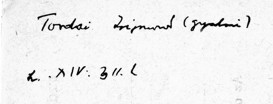 Tordai Zsigmond (gyalui)
L. XIV. 3 II. L